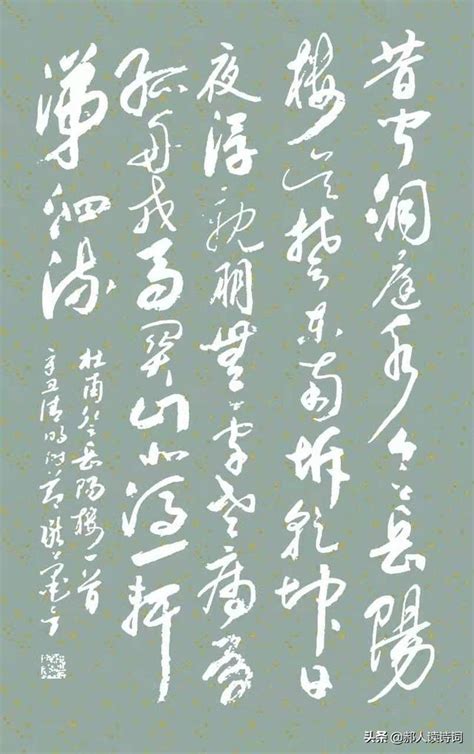 昔聞洞庭水今上岳陽
樓吳楚東南坼乾坤日
夜浮親朋無一字老病有
孤舟戎馬關山北馮一軒
涕泗流
杜甫登岳陽樓一首
辛丑清明時節
头条 @郝人读诗词